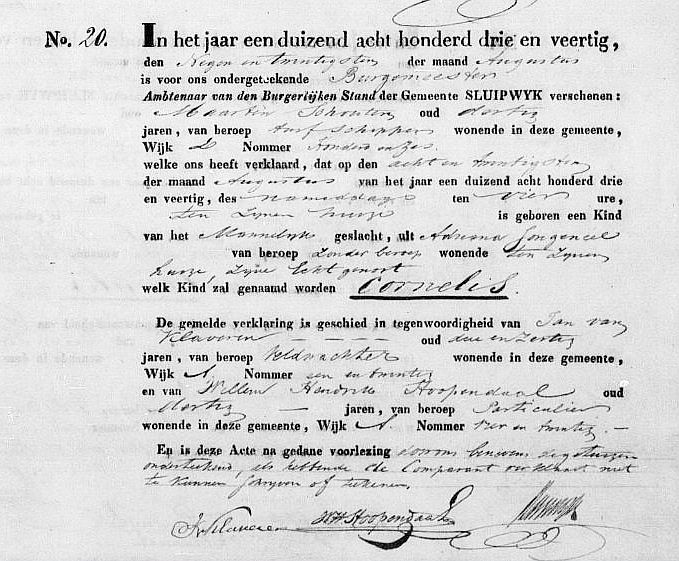 No. 20. In het jaar een duizend acht honderd drie en veertig,
den Negen en twintigsten der maand Augustus
is voor ons ondergeteekende Burgemeester
Ambtenaar van den Burgerlijken Stand der Gemeente SLUIPWYK verschenen:
Maarten Schouten oud dertig
jaren, van beroep turfschipper wonende in deze gemeente,
Wijk Nommer Honderd en zes
welke ons heeft verklaard, dat op den acht en twintigsten
der maand Augustus van het jaar een duizend acht honderd drie
en veertig, des namiddags ten vier ure,
ten zijnen huize is geboren een Kind
van het Mannelijk geslacht, uit Adriana Jongeneel
van beroep Zonder beroep wonende ten zijnen
huize, zijne Echtgenoot
welk Kind zal genaamd worden Cornelis.
De gemelde verklaring is geschied in tegenwoordigheid van Jan van
Klaveren oud drie en
jaren, van beroep Veldwachter wonende in deze gemeente,
Wijk A Nommer een en twintig
en van Willem Hendrik Hoopendaal oud
jaren, van beroep Particulier
wonende in deze gemeente, Wijk A Nommer vier en twintig.
En is deze Acte na gedane voorlezing door ons benevens de getuigen
onderteekend, als hebbende de Comparant verklaart niet
te kunnen schrijven of tekenen.
JvKlaveren WHHoopendaal